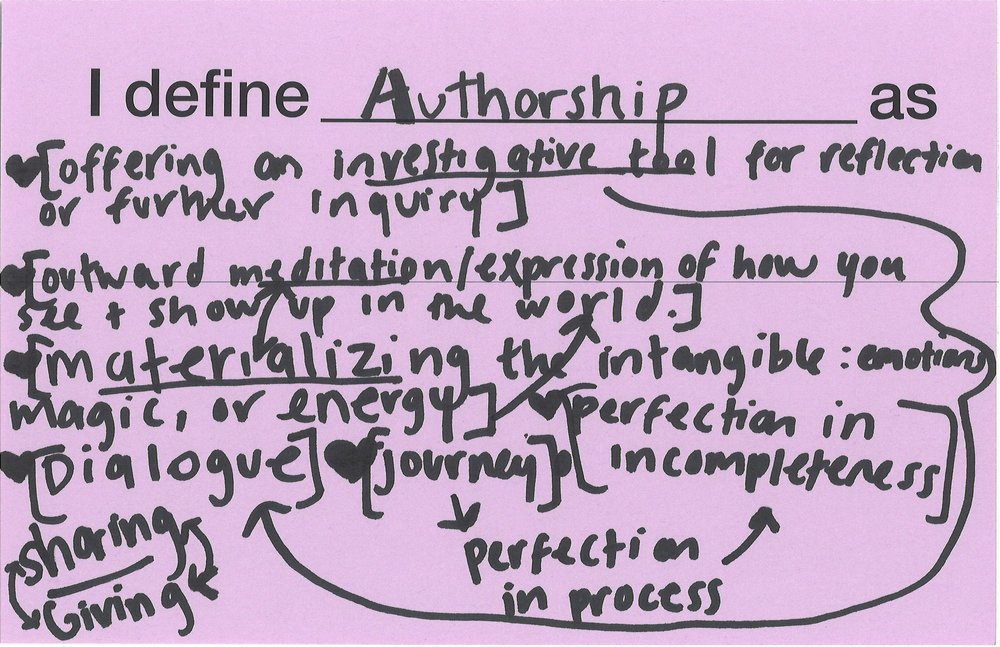 I define Authorship as
♥[offering an investigative tool for reflection
or further inquiry]
♥[outward meditation/expression of how you
see + show up in the world.]
♥[materializing the intangible: emotions
magic, or energy] ♥[perfection in
♥[Dialogue] ♥[journey] incompleteness]
sharing
Giving
perfection
in process